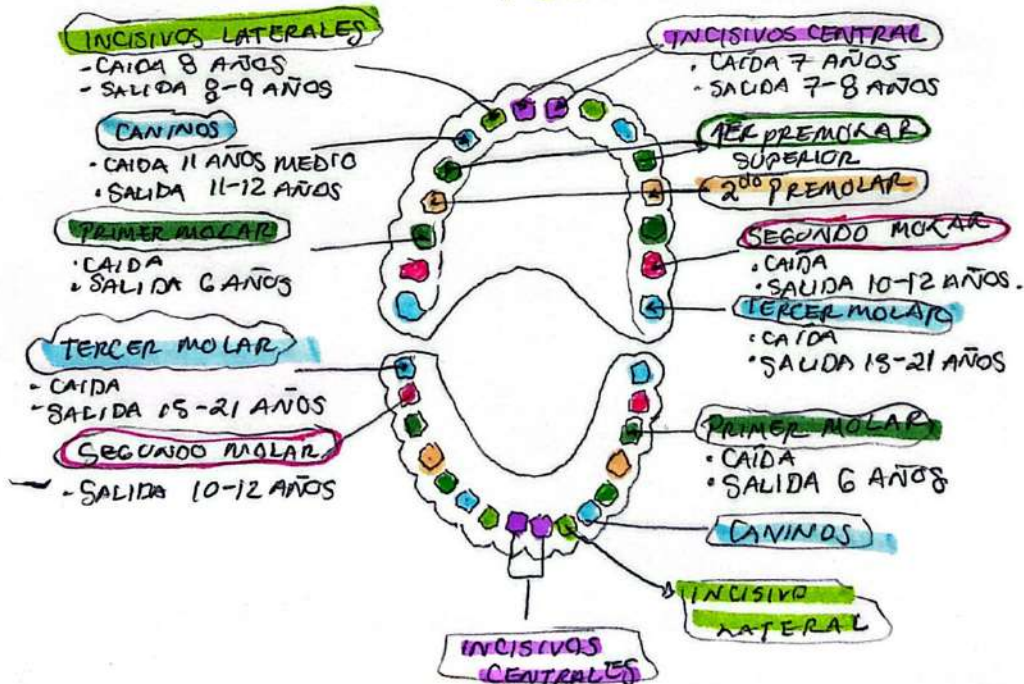 INCISIVOS LATERALES
- CAIDA 8 AÑOS
- SALIDA 8-9 AÑOS
CANINOS
• CAIDA 11 AÑOS MEDIO
• SALIDA 11-12 AÑOS
PRIMER MOLAR
• CAIDA
• SALIDA 6 AÑOS
TERCER MOLAR
- CAIDA
- SALIDA 18-21 AÑOS
SEGUNDO MOLAR
- SALIDA 10-12 AÑOS
INCISIVOS CENTRAL
• CAIDA 7 AÑOS
• SALIDA 7-8 AÑOS
1ER PREMOLAR
SUPERIOR
2do PREMOLAR
SEGUNDO MOLAR
• CAIDA
• SALIDA 10-12 AÑOS.
TERCER MOLAR
• CAIDA
• SALIDA 18-21 AÑOS
PRIMER MOLAR
• CAIDA
• SALIDA 6 AÑOS
CANINOS
INCISIVO
LATERAL
INCISIVOS
CENTRALES